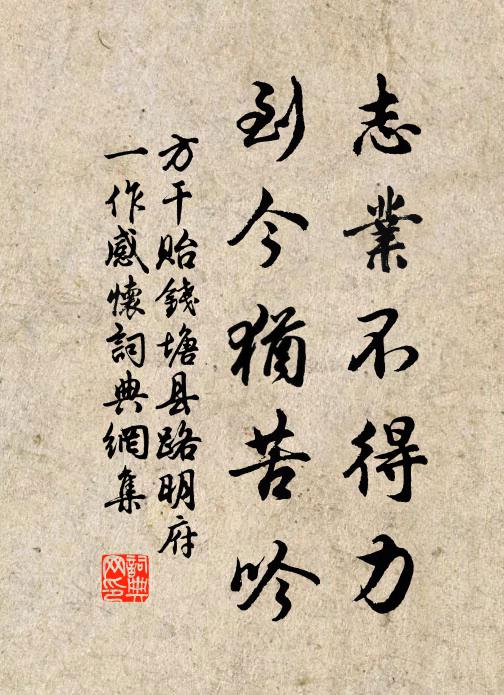 志業不得力
到今猶苦吟
方干貽錢塘县路明府
一作感懷詞典網集
詞典网印